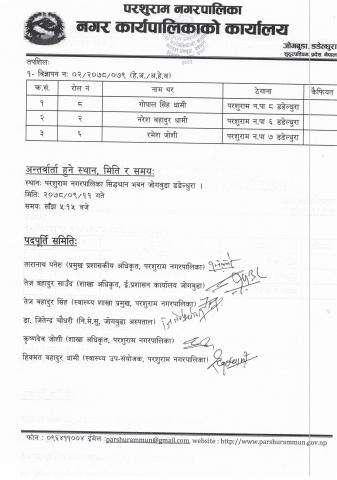 परशुराम नगरपालिका
नगर कार्यपालिकाको कार्यालय
जोगबुडा, डडेल्धुरा
सुदूरपश्चिम प्रदेश, नेपाल
तपशिलः
१- विज्ञापन नं: ०२/२०७८/०७९ (हे.अ./अ.हे.ब)
क्र.सं. रोल नं नाम थर ठेगाना कैफियत
१ ८ गोपाल सिंह धामी परशुराम न.पा ८ डडेल्धुरा
२ २ नरेश बहादुर धामी परशुराम न.पा ६ डडेल्धुरा
३ ६ रमेश जोशी परशुराम न.पा ७ डडेल्धुरा
अन्तर्वार्ता हुने स्थान, मिति र समयः
स्थानः परशुराम नगरपालिका सिद्धथान भवन जोगबुडा डडेल्धुरा ।
मिति: २०७८/०९/११ गते
समयः साँझ ५:१५ बजे
पदपूर्ति समितिः
तारानाथ पनेरु (प्रमुख प्रशासकीय अधिकृत, परशुराम नगरपालिका)
तेज बहादुर साउँद (शाखा अधिकृत, ई.प्रशासन कार्यालय जोगबुडा)
तेज बहादुर सिंह (स्वास्थ्य शाखा प्रमुख, परशुराम नगरपालिका)
डा. जितेन्द्र चौधरी (नि.मे.सु, जोगबुडा अस्पताल)
कृष्णदेव जोशी (शाखा अधिकृत, परशुराम नगरपालिका)
हिक्मत बहादुर धामी (स्वास्थ्य उप-संयोजक, परशुराम नगरपालिका)
फोन : ०९६४११००४ ईमेल :parshurammun@gmail.com, website : http://www.parshurammun.gov.np